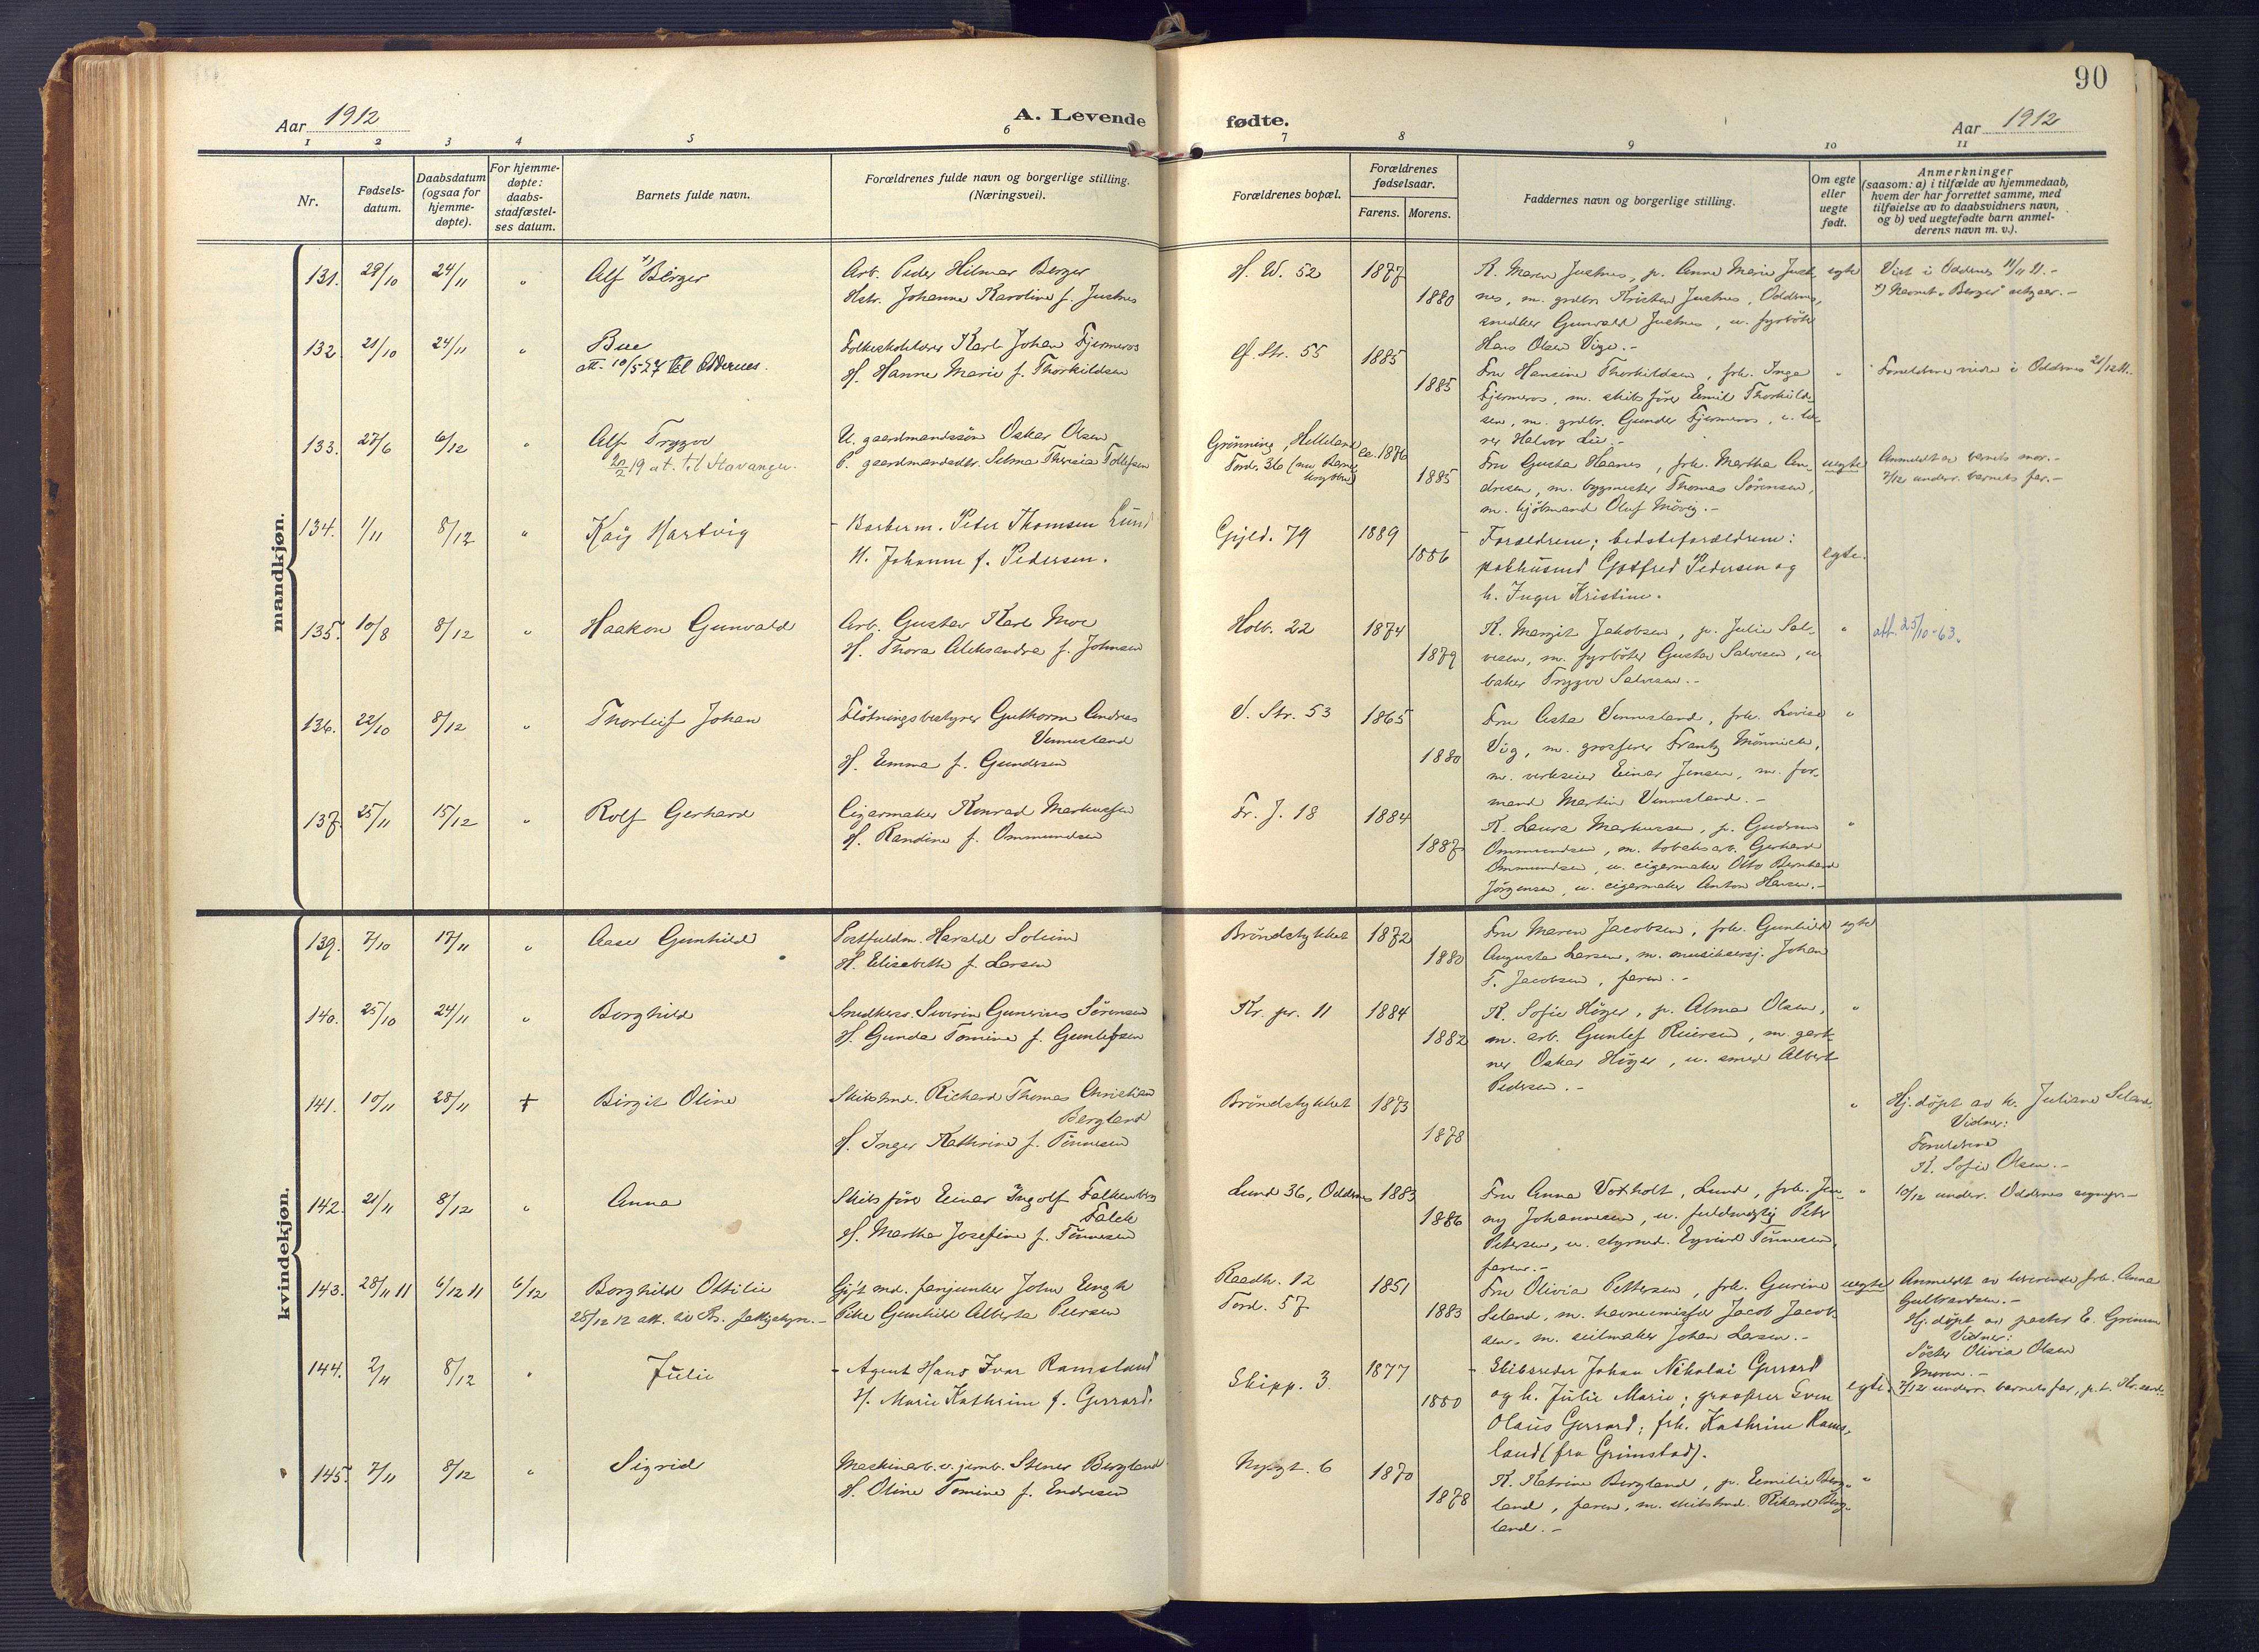 90
Aar 1912
A. Levende
fødte.
Aar 1912
1 2 3 4 5 6 7 8 9 10 11
Nr.
Fødsels-
datum.
Daabsdatum
(ogsaa for
hjemme-
døpte).
For hjemme-
døpte:
daabs-
stadfæstel-
ses datum.
Barnets fulde navn.
Forældrenes fulde navn og borgerlige stilling.
(Næringsvei).
Forældrenes bopæl.
Forældrenes
fødselsaar.
Farens. Morens.
Faddernes navn og borgerlige stilling.
Om egte
eller
uegte
født.
Anmerkninger
(saasom: a) i tilfælde av hjemmedaab,
hvem der har forrettet samme, med
tilføielse av to daabsvidners navn,
og b) ved uegtefødte barn anmel-
derens navn m. v.).
mandkjøn.
131. 29/10 24/11 " Alf x) Birger
Arb. Peder Hilmar Berger
Hstr. Johanne Karoline f. Justnes
H. W. 52 1877
1880
K. Maren Justnes, p. Anne Marie Just-
nes, m. grdbr. Kristen Justnes, Oddernes,
snedker Gunvald Justnes, u. fyrbøter
Hans Olsen Vige.-
egte
Viet i Oddernes 11/11 11.-
x) Navnet "Berger" utgaar.-
132. 21/10 24/11 " Bue
att. 10/5-27 til Oddernes.
Folkeskolelærer Karl Johan Fjermeros
H. Hanne Marie f. Thorkildsen
Ef. Str. 55 1885
1885
Fru Hansine Thorkildsen, frk. Inga
Fjermeros, m. skibsfører Emil Thorkild-
sen, m. grdbr. Gunder Fjermeros, u. læ-
rer Halvor Lie.-
"
Forældrene viede i Oddernes 21/12 11.
133. 27/6 6/12 " Alf Trygve
20/2 19 at. til Stavanger.
U. gaardmandssøn Oskar Olsen
P. gaardmandsdtr. Selma Theresia Tollefsen
Grønning, Helleland
Tord. 36 (nu Rane
ca. 1876
1885
Fru Gusta Haanes, frk. Martha An-
dresen, m. bygmester Thomas Sørensen,
m. kjøbmand Oluf Møvig.-
uegte
Anmeldt av barnets mor.-
7/12 underr. barnets far.-
134. 1/11 8/12 " Kaÿ Hartvig
- Barberm. Peter Thomsen Lund
H. Johanne f. Pedersen.
Gyld. 79 1889
1886
- Forældrene; bedsteforældrene:
pakhusmd Gotfred Pedersen og
h. Inger Kristine.
egte.
135. 10/8 8/12 " Haakon Gunvald
Arb. Gustav Karl Moe
H. Thora Aleksandra f. Johnsen
Holb. 22 1874
1879
K. Margit Jakobsen, p. Julie Sal-
vesen, m. fyrbøter Gustav Salvesen, u.
baker Trygve Salvesen.-
"
att. 25/10-63.
136. 22/10 8/12 " Thorleif Johan
Fløtningsbestyrer Guthorm Andreas
Vennesland
H. Emma f. Gundersen
V. Str. 53 1865
1880
Fru Asta Vennesland, frk. Lovise
Vig, m. grosserer Frantz Mønnich,
m. verkseier Einar Jensen, m. for-
mand Martin Vennesland.-
"
137. 25/11 15/12 " Rolf Gerhard
Cigarmaker Konrad Markussen
H. Randine f. Ommundsen
Fr. J. 18 1884
1887
K. Laura Markussen, p. Gudrun
Ommundsen, m. tobaksarb. Gerhard
Ommundsen, u. cigarmaker Otto Bernhard
Jørgensen, u. cigarmaker Anton Hansen.-
"
kvindekjøn.
139. 7/10 17/11 " Aase Gunhild
Postfuldm. Harald Solum
H. Elisabeth f. Larsen
Brøndstykket 1872
1880
Fru Maren Jacobsen, frk. Gunhild
Augusta Larsen, m. musiksersj. Johan
F. Jacobsen, faren.-
egte
140. 25/10 24/11 " Borghild
Snedkersv. Severin Gunerius Sørensen
H. Gunda Tomine f. Gunlefsen
Kr. pr. 11 1884
1882
K. Sofie Høyer, p. Alma Olsen,
m. arb. Gunlef Reiersen, m. gart-
ner Oskar Høyer, u. smed Albert
Pedersen.-
"
141. 10/11 28/11 + Birgit Oline
Skibstmd. Richard Thomas Christian
Bergland
H. Inger Kathrine f. Tønnesen
Brøndstykket 1873
1878
"
Hj.døpt av k. Juliane Seland.
Vidner:
Forældrene
K. Sofie Olsen.-
142. 21/11 8/12 " Anna
Skibsfører Einar Ingolf Falkenberg
Falch
H. Martha Josefine f. Tønnesen
Lund 36, Oddernes 1883
1886
Fru Anna Voxholt, Lund, frk. Jen-
ny Johannesen, u. fuldmægtig Peter
Petersen, u. styrmd. Eyvind Tønnesen,
faren.-
"
10/12 underr. Oddernes sognepr.-
143. 28/11 11 6/12 11 6/12 Borghild Ottilie
28/12 12 att. til Bs. fattigstyre.-
Gift md. fanjunker John Engh
Pike Gunhild Alberta Peersen
Raadh. 12
Tord. 57
1851
1883
Fru Olivia Pettersen, frk. Gurine
Seland, m. havnemisfor. Jacob Jacob-
sen, m. seilmaker Johan Larsen.-
uegte
Anmeldt av lærerinde frk. Anna
Gulbrandsen.-
Hj.døpt av pastor E. Grimm
Vidner:
Søster Olivia Olsen
Moren.-
7/12 underr. barnets far, p.t. Kr.sand.
144. 2/11 8/12 " Julie
- Agent Hans Ivar Ramsland
H. Marie Kathrine f. Gerrard.
Skipp. 3. 1877
1880
- Skibsreder Johan Nikolai Gerrard
og h. Julie Marie; grosserer Sven
Olaus Gerrard; frk. Kathrine Rams-
land (fra Grimstad).
egte.
145. 7/11 8/12 " Sigrid
Maskinarb. v. jernb. Stener Bergland
H. Oline Tomine f. Endresen
Ny.gt. 6 1870
1878
K. Katrine Bergland, p. Emilie Berg-
land, faren, m. skibstmd. Rikard Berg-
land.-
"